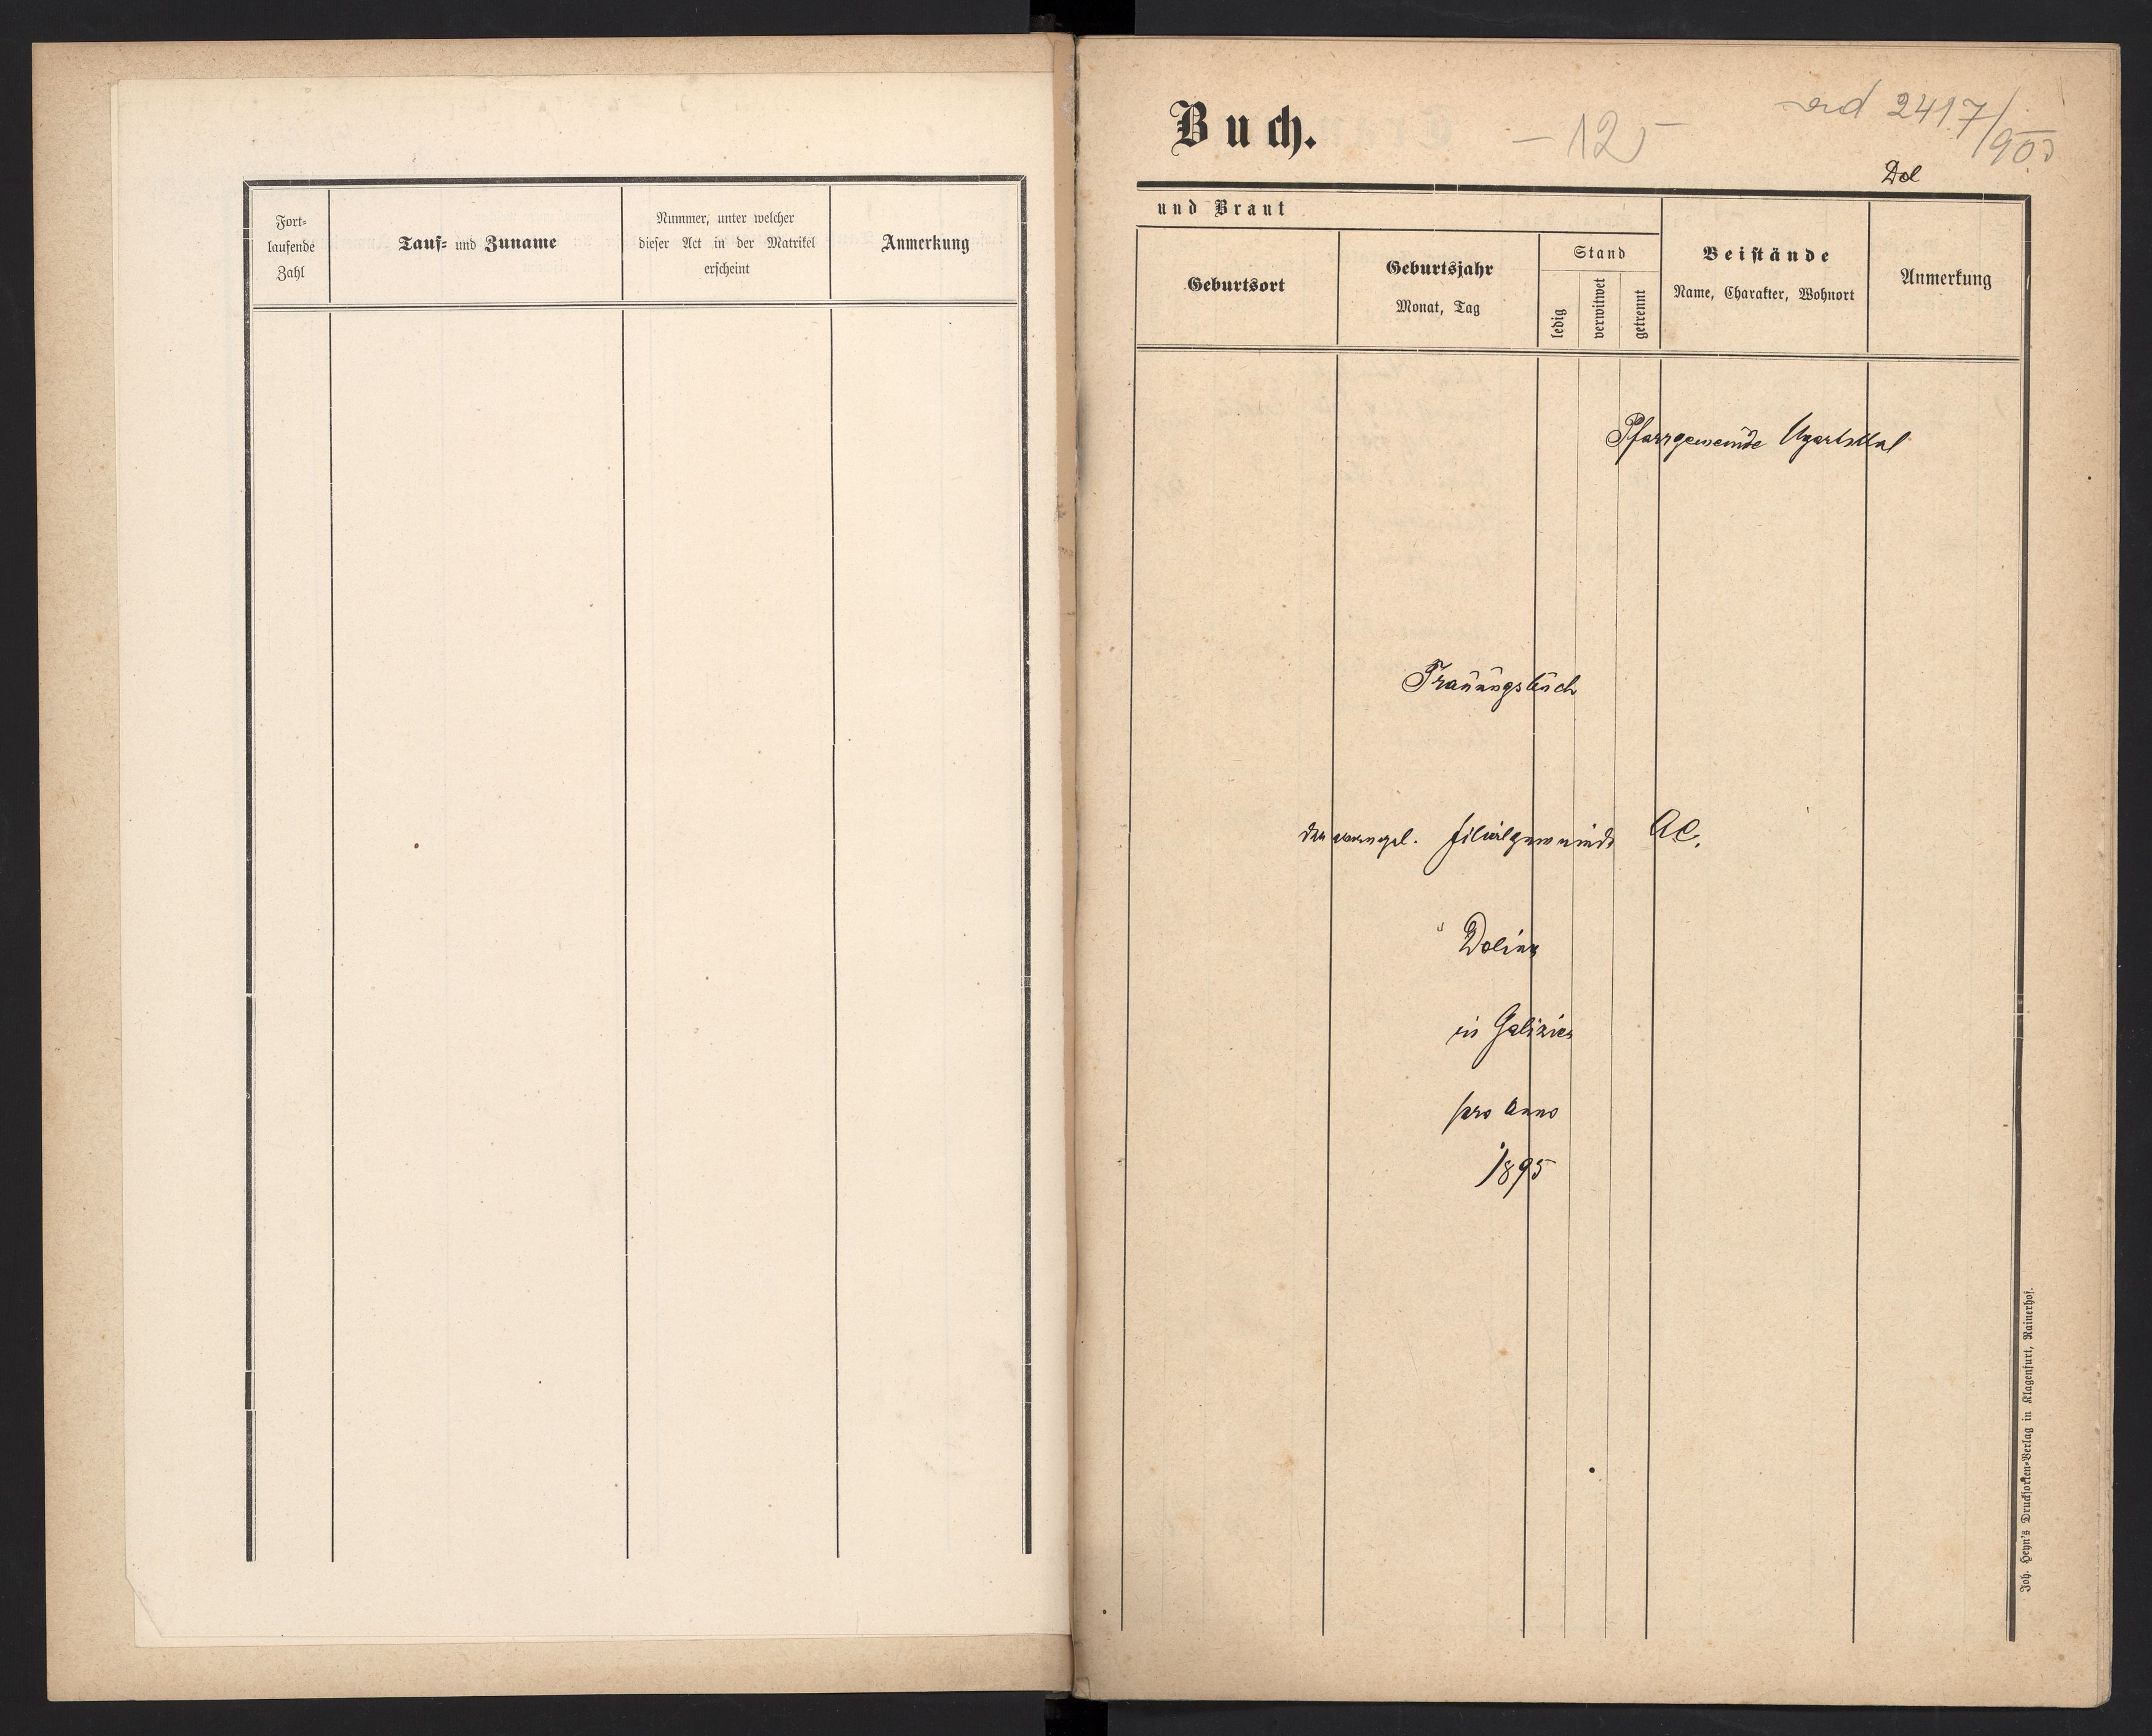 Fort-
laufende
Zahl
Tauf- und Zuname
Nummer, unter welcher
dieser Act in der Matrikel
erscheint
Anmerkung
Buch.
- 125
ad 2417/903
Dol
und Braut
Geburtsort
Geburtsjahr
Monat, Tag
Stand
ledig
verwitwet
getrennt
Beistände
Name, Charakter, Wohnort
Anmerkung
Pfarrgemeinde Ugartsthal
Trauungsbuch
der evangel. Filialgemeinde AC.
Dolina
in Galizien
pro anno
1895
Joh. Heyn's Drucksorten-Verlag in Klagenfurt, Rainerhof.